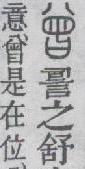 曾䛐之舒
意曾是在位